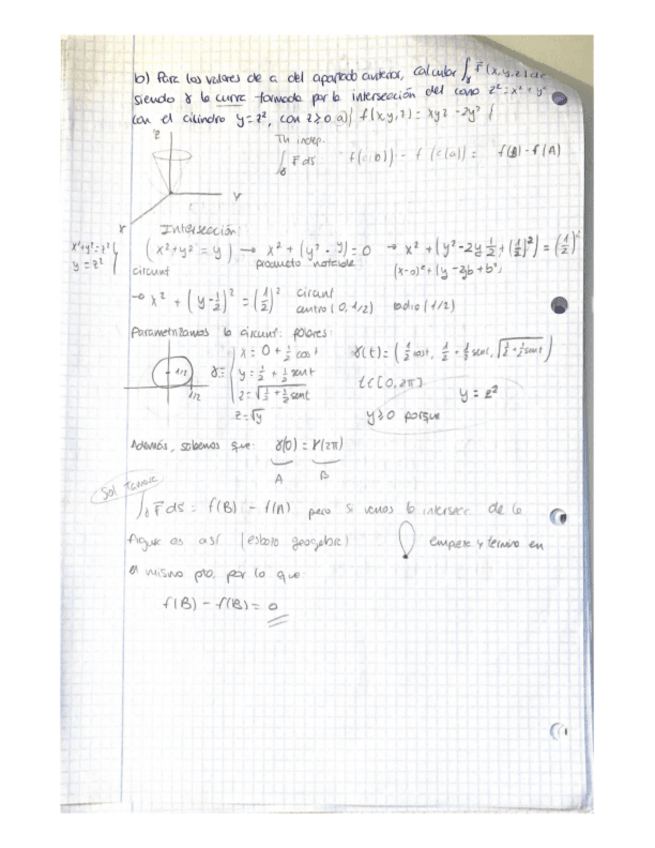 b) Para los valores de a del apartado anterior, calcular ∫γ F̄(x,y,z) ds
siendo γ la curva formada por la intersección del cono z²=x²+y²
con el cilindro y=z², con z≥0 a) f(x,y,z) = xy² - 2y²
Th indep.
∫γ F̄ ds f(c(b)) - f(c(a)) = f(B) - f(A)
z
y
x
Intersección:
x²+y²=z²
y=z²
(x²+y²=y) → x²+(y²-y)=0 → x²+(y²-2y 1/2+(1/2)²)=(1/2)²
circunf
producto notable
→ x²+(y-1/2)²=(1/2)² circunf centro (0,1/2) radio (1/2)
Parametrizamos la circunf: polares:
1/2
γ= x=0+1/2 cost
y=1/2+1/2 sent
z=√(1/2+1/2 sent)
z=√y
γ(t)=(1/2 cost, 1/2+1/2 sent, √(1/2+1/2 sent))
t∈[0,2π]
y=z²
y≥0 porque
Además, sabemos que: γ(0)=γ(2π)
A B
∫γ F̄ ds = f(B) - f(A) pero si vemos la intersec de la
figura es así (esbozo geogebra) empieza y termina en
el mismo pto, por lo que:
f(B) - f(B) = 0